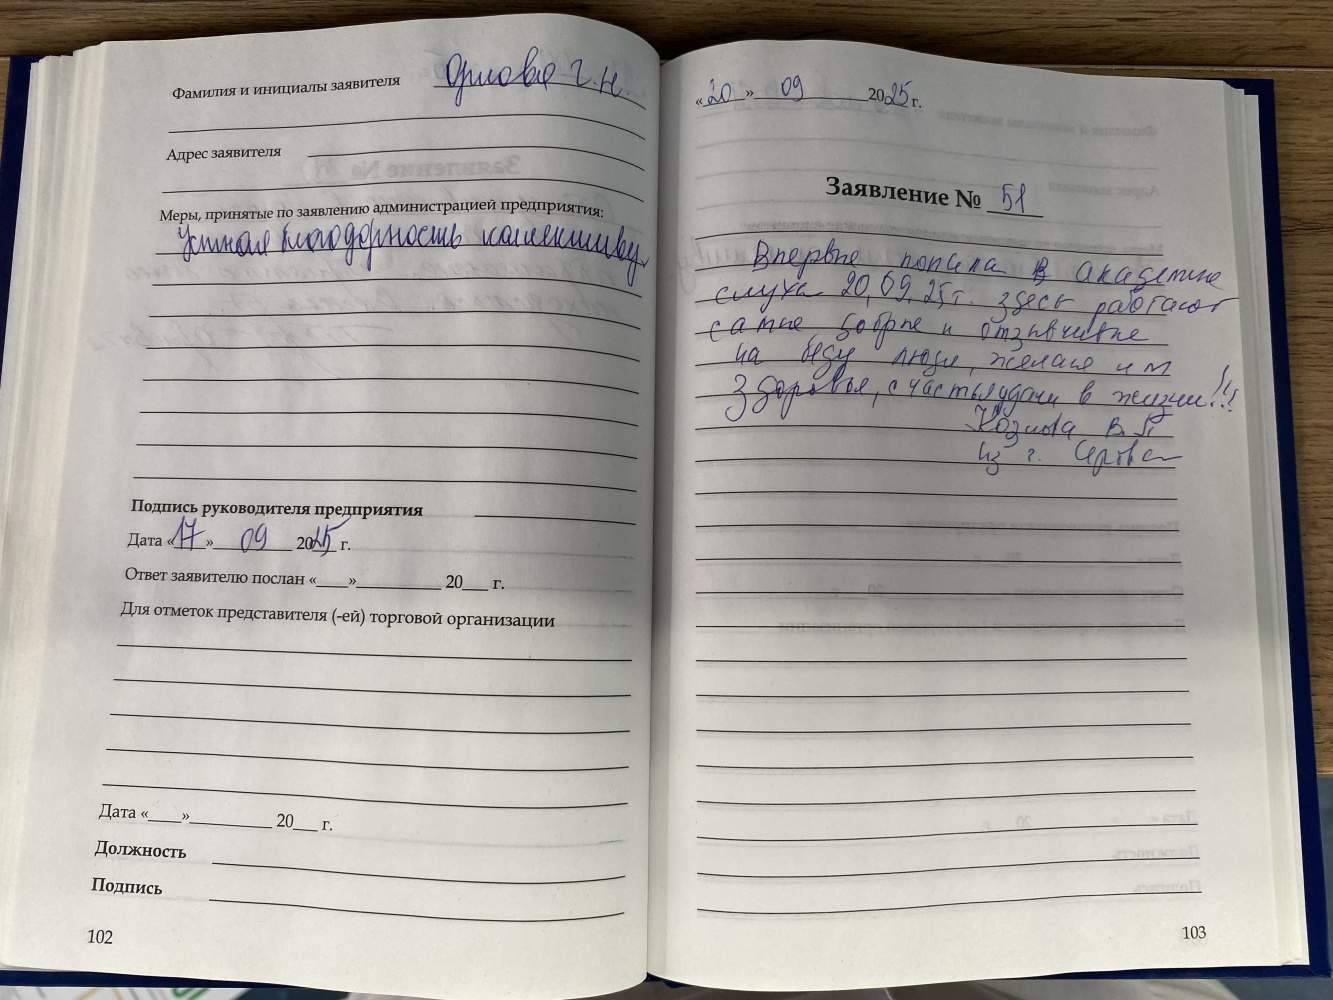 Фамилия и инициалы заявителя Орлова Г.Н.
Адрес заявителя
Меры, принятые по заявлению администрацией предприятия:
Устная благодарность коллективу.
Подпись руководителя предприятия
Дата «17» 09 2025 г.
Ответ заявителю послан «____»__________ 20___ г.
Для отметок представителя (-ей) торговой организации
Дата «____»__________ 20___ г.
Должность
Подпись
102
«20» 09 2025 г.
Заявление № 51
Впервые попала в академию
слуха 20,09,25г. здесь работают
самые добрые и отзывчивые
на беду люди, желаю им
здоровья, счастья, удачи в жизни!!!
Козлова В.П
из г. Серова
103